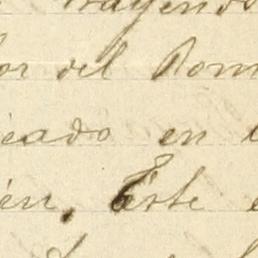 trayendo
or del Rom
icado en
én. Este e